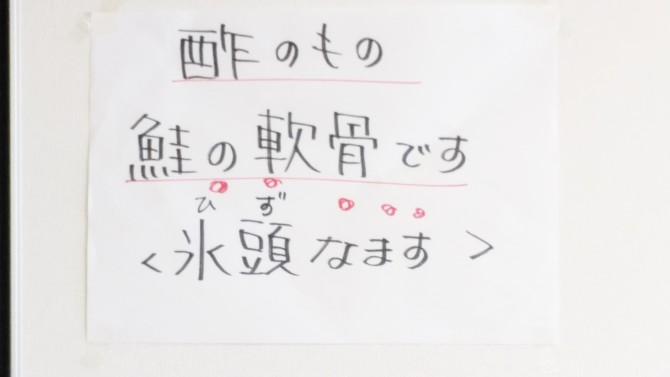 酢のもの
鮭の軟骨です
ひ ず
<氷頭なます>